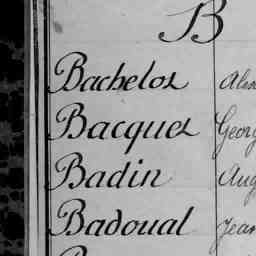 B
Bachelot
Bacquet Georg
Badin Aug
Badoual Jean